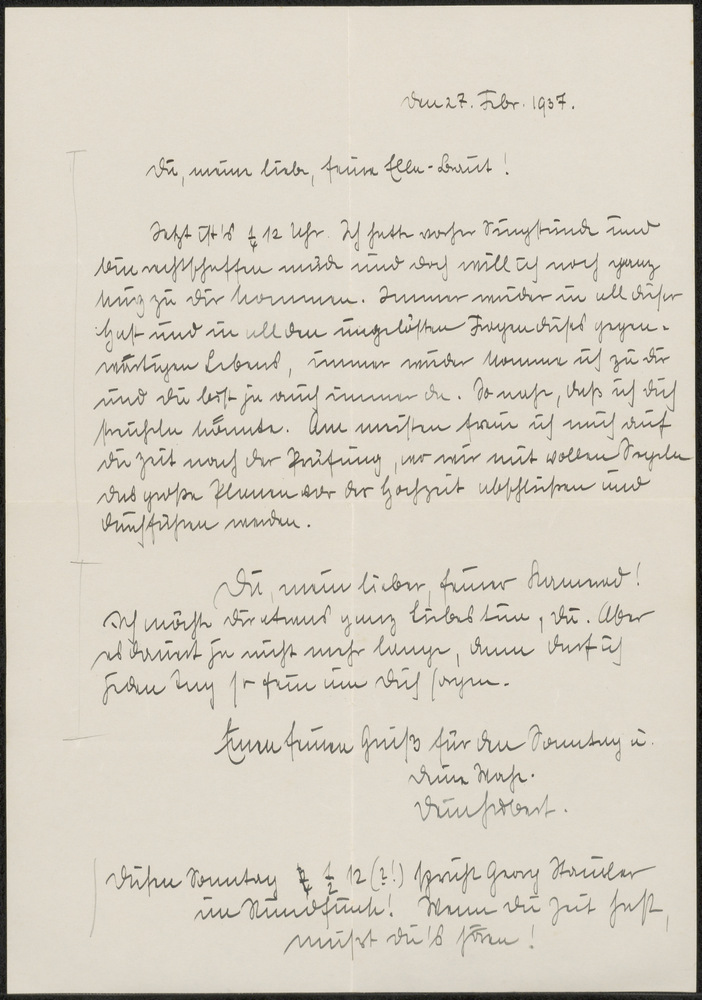 Den 27. Febr. 1937.
Du, meine liebe, feine Ella-Braut!
Jetzt ist's ¼ 12 Uhr. Ich hatte vorher Singstunde und
bin rechtschaffen müde und doch will ich noch ganz
kurz zu Dir kommen. Immer wieder in all dieser
Hast und in all den ungelösten Fragen dieses gegen-
wärtigen Lebens, immer wieder komme ich zu Dir
und Du bist ja auch immer da. So nahe, daß ich Dich
streicheln könnte. Am meisten freue ich mich auf
die Zeit nach der Prüfung, wo wir mit vollen Segeln
das große Planen vor der Hochzeit abschließen und
durchführen werden.
Du, mein lieber, feiner Kamerad!
Ich möchte Dir etwas ganz Liebes tun, Du. Aber
es dauert ja nicht mehr lange, dann darf ich
jeden Tag so fein um Dich sorgen.
Einen feinen Gruß für den Sonntag u.
Deine
Dein Herbert.
Diesen Sonntag ½ 12 (?!) spricht Georg Stammler
im Rundfunk! Wenn Du Zeit hast,
mußt Du's hören!